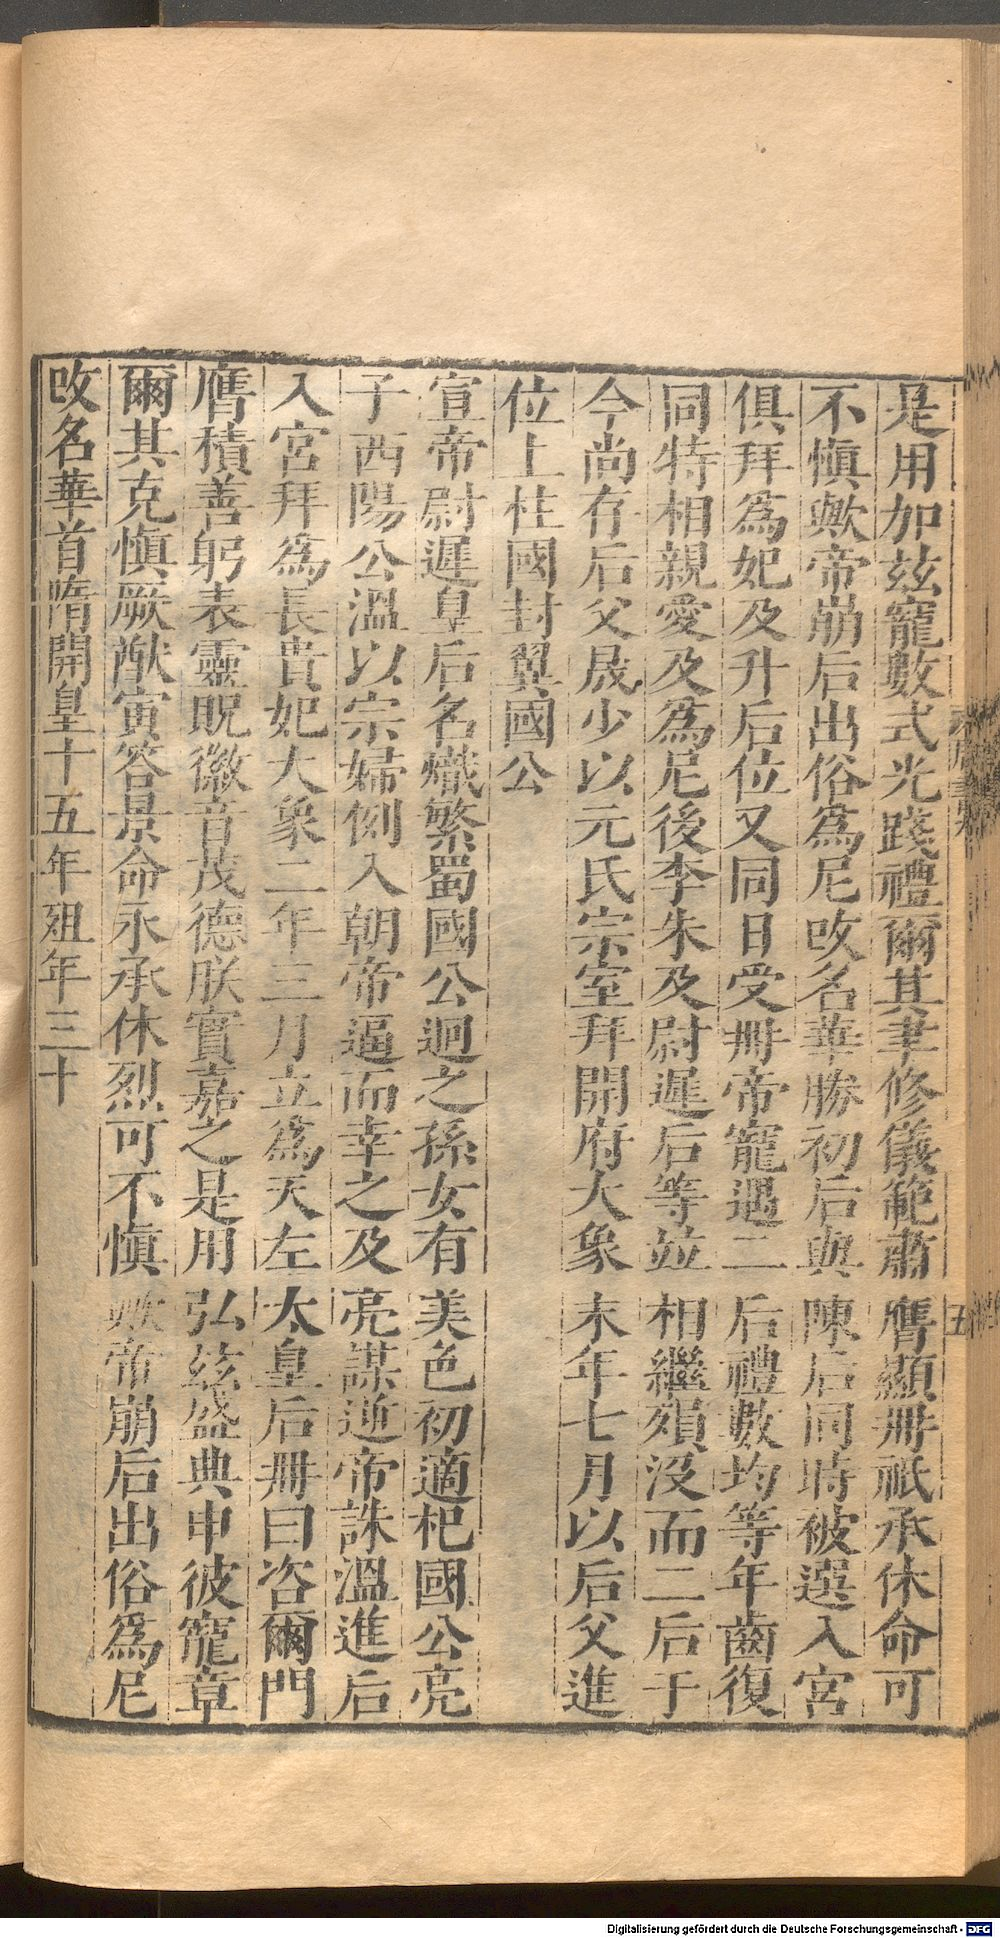 是用加茲寵數式光踐禮爾其聿修儀範肅膺顯冊祗承休命可
不愼歟帝崩后出俗爲尼改名華勝初后與陳后同時被選入宮
俱拜爲妃及升后位又同日受冊帝寵遇二后禮數均等年齒復
同特相親愛及爲尼後李朱及尉遲后等竝相繼殞沒而二后于
今尚存后父晟少以元氏宗室拜開府大象末年七月以后父進
位上柱國封翼國公
宣帝尉遲皇后名熾繁蜀國公迥之孫女有美色初適杞國公亮
子西陽公溫以宗婦例入朝帝逼而幸之及亮謀逆帝誅溫進后
入宮拜爲長貴妃大象二年三月立爲天左太皇后冊曰咨爾門
膺積善躬表靈貺徽音茂德朕實嘉之是用弘茲盛典申彼寵章
爾其克愼厥猷寅答景命永承休烈可不愼歟帝崩后出俗爲尼
改名華首隋開皇十五年殂年三十
五
Digitalisierung gefördert durch die Deutsche Forschungsgemeinschaft - DFG